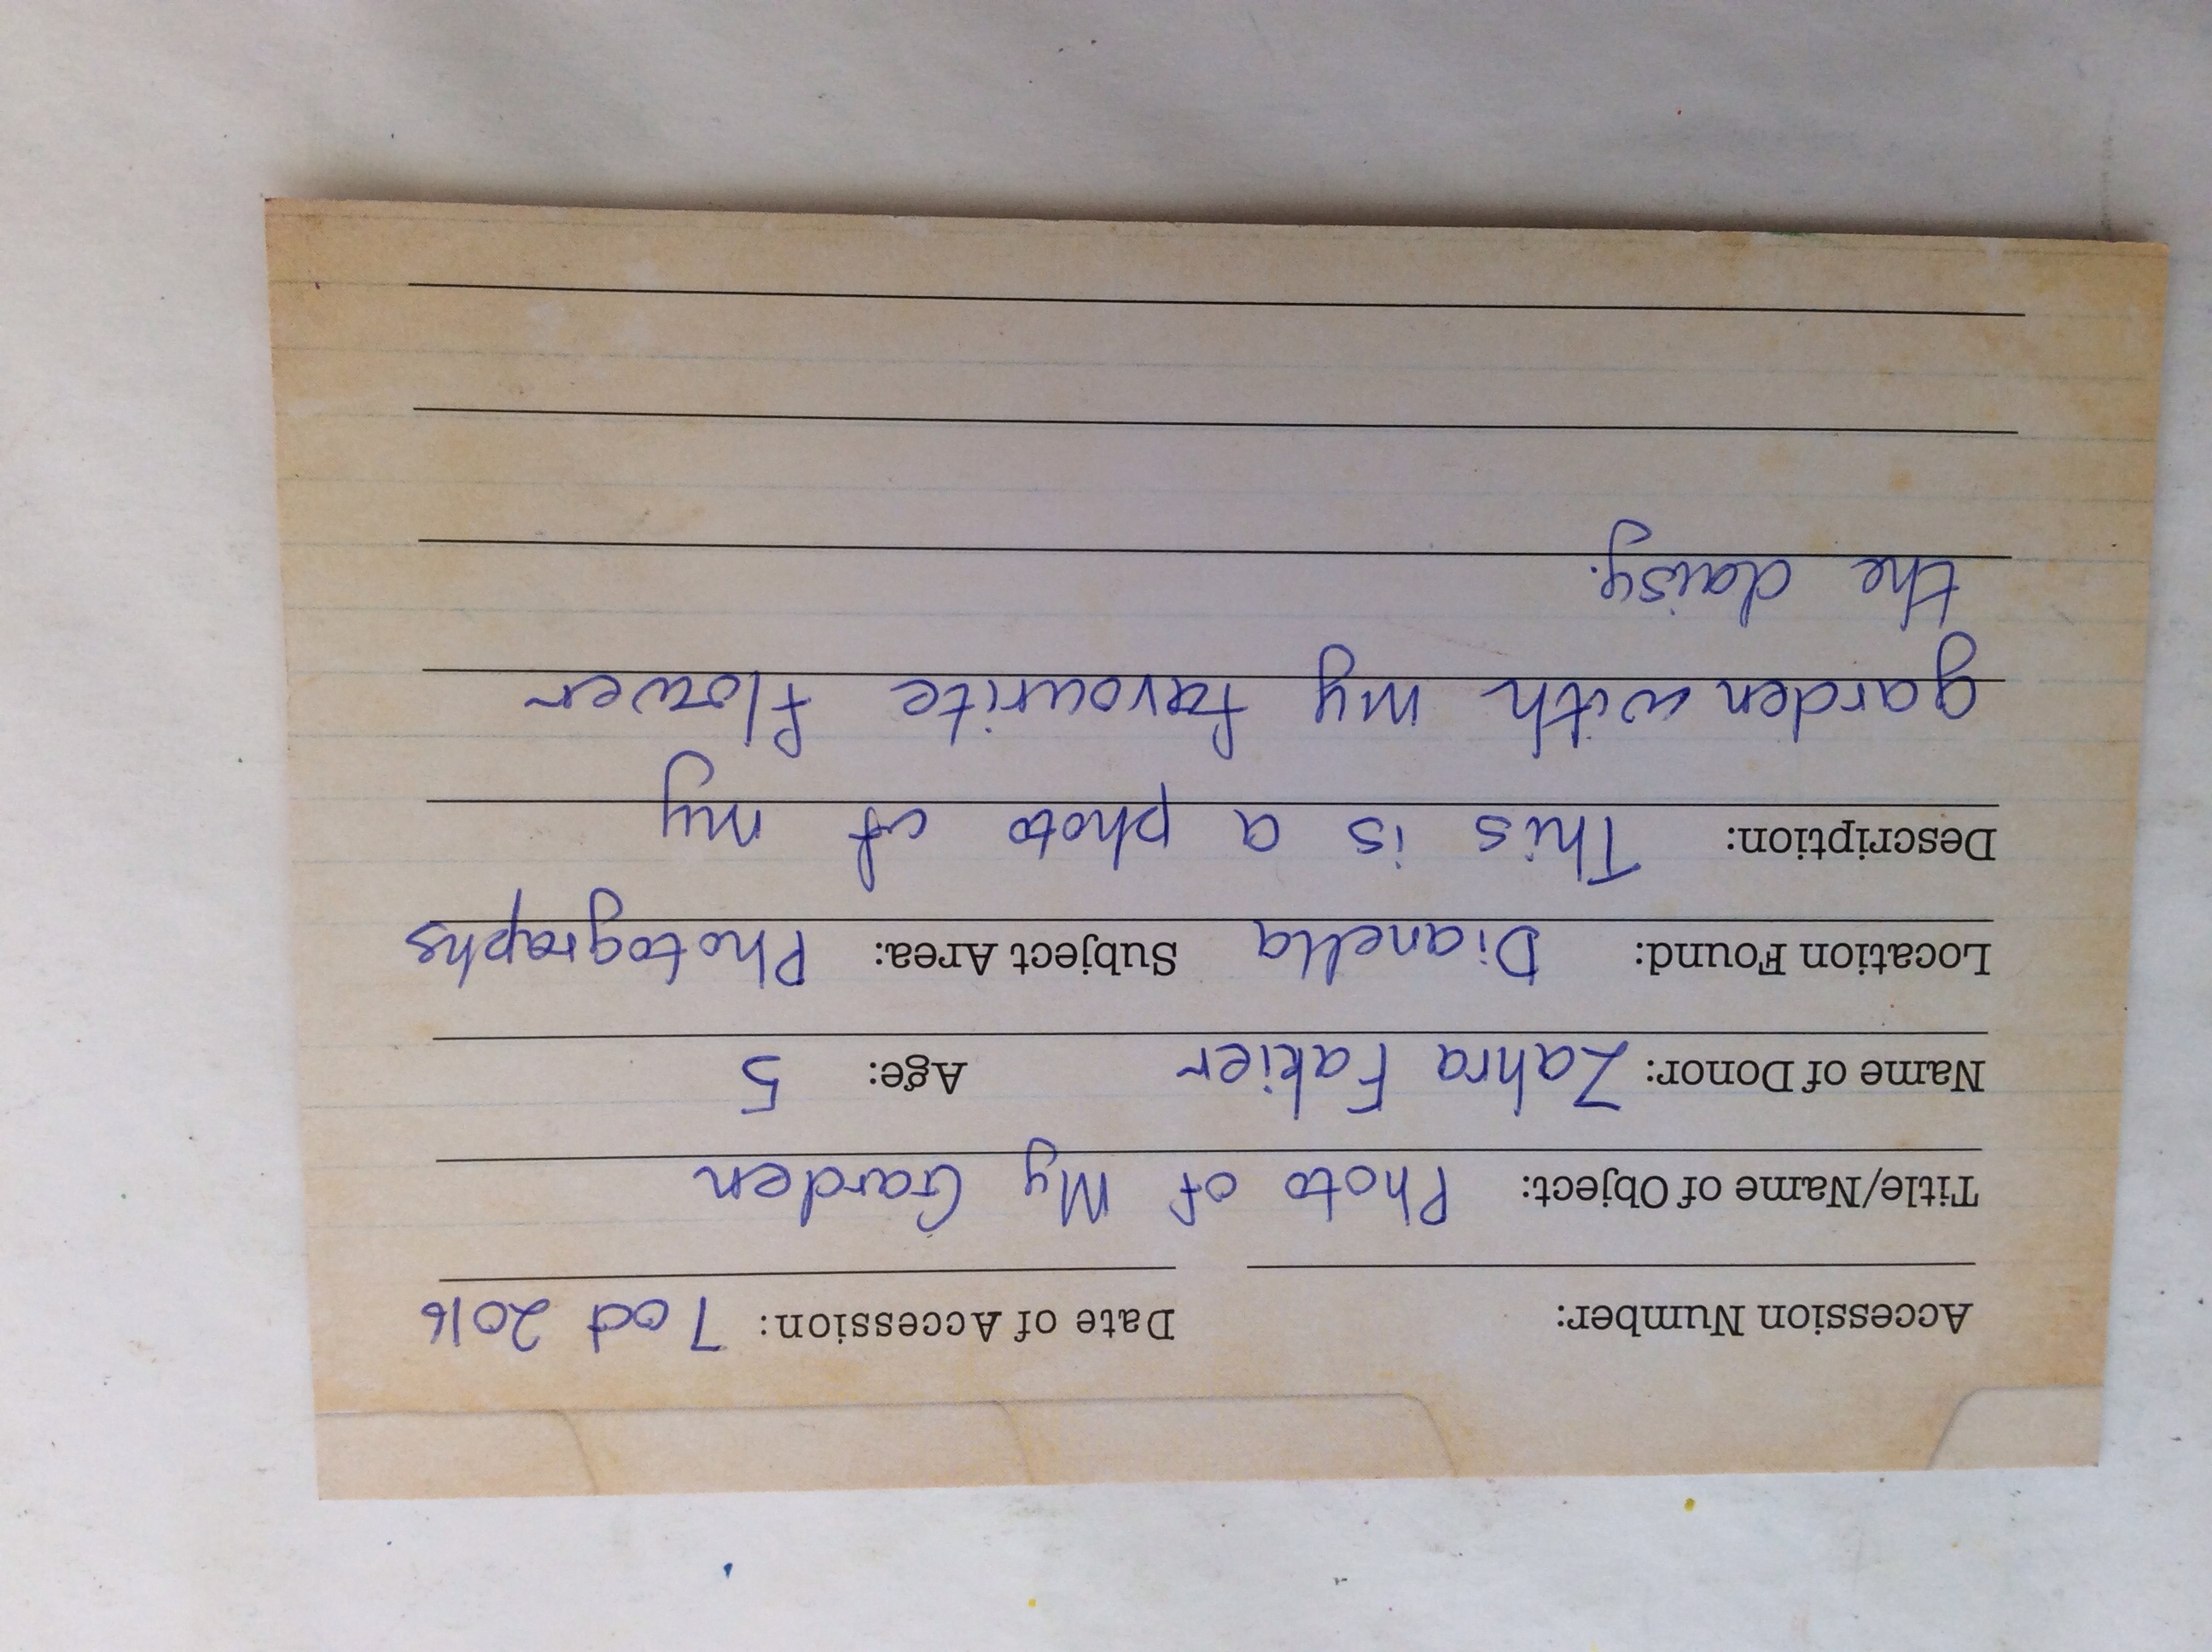 Accession Number: Date of Accession: 7 Oct 2016
Title/Name of Object: Photo of My Garden
Name of Donor: Zahra Fakier Age: 5
Location Found: Dianella Subject Area: Photographs
Description: This is a photo of my
garden with my favourite flower
the daisy.